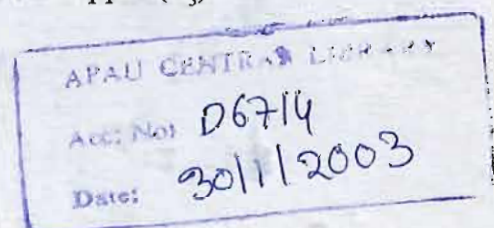 APAU CENTRAL LIBRARY
Acc: No: D6714
Date: 30/1/2003